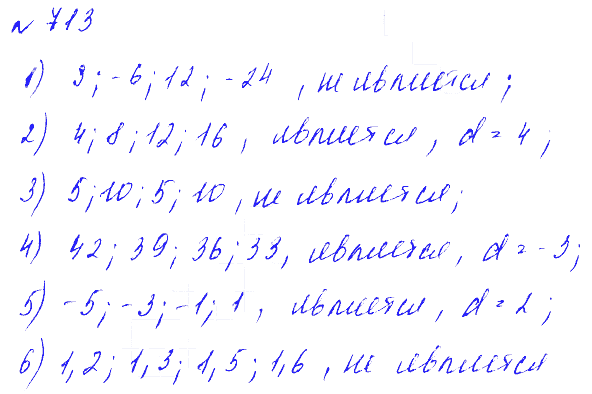 № 713
1) 3; -6; 12; -24, не является;
2) 4; 8; 12; 16, является, d = 4;
3) 5; 10; 5; 10, не является;
4) 42; 39; 36; 33, является, d = -3;
5) -5; -3; -1; 1, является, d = 2;
6) 1,2; 1,3; 1,5; 1,6, не является